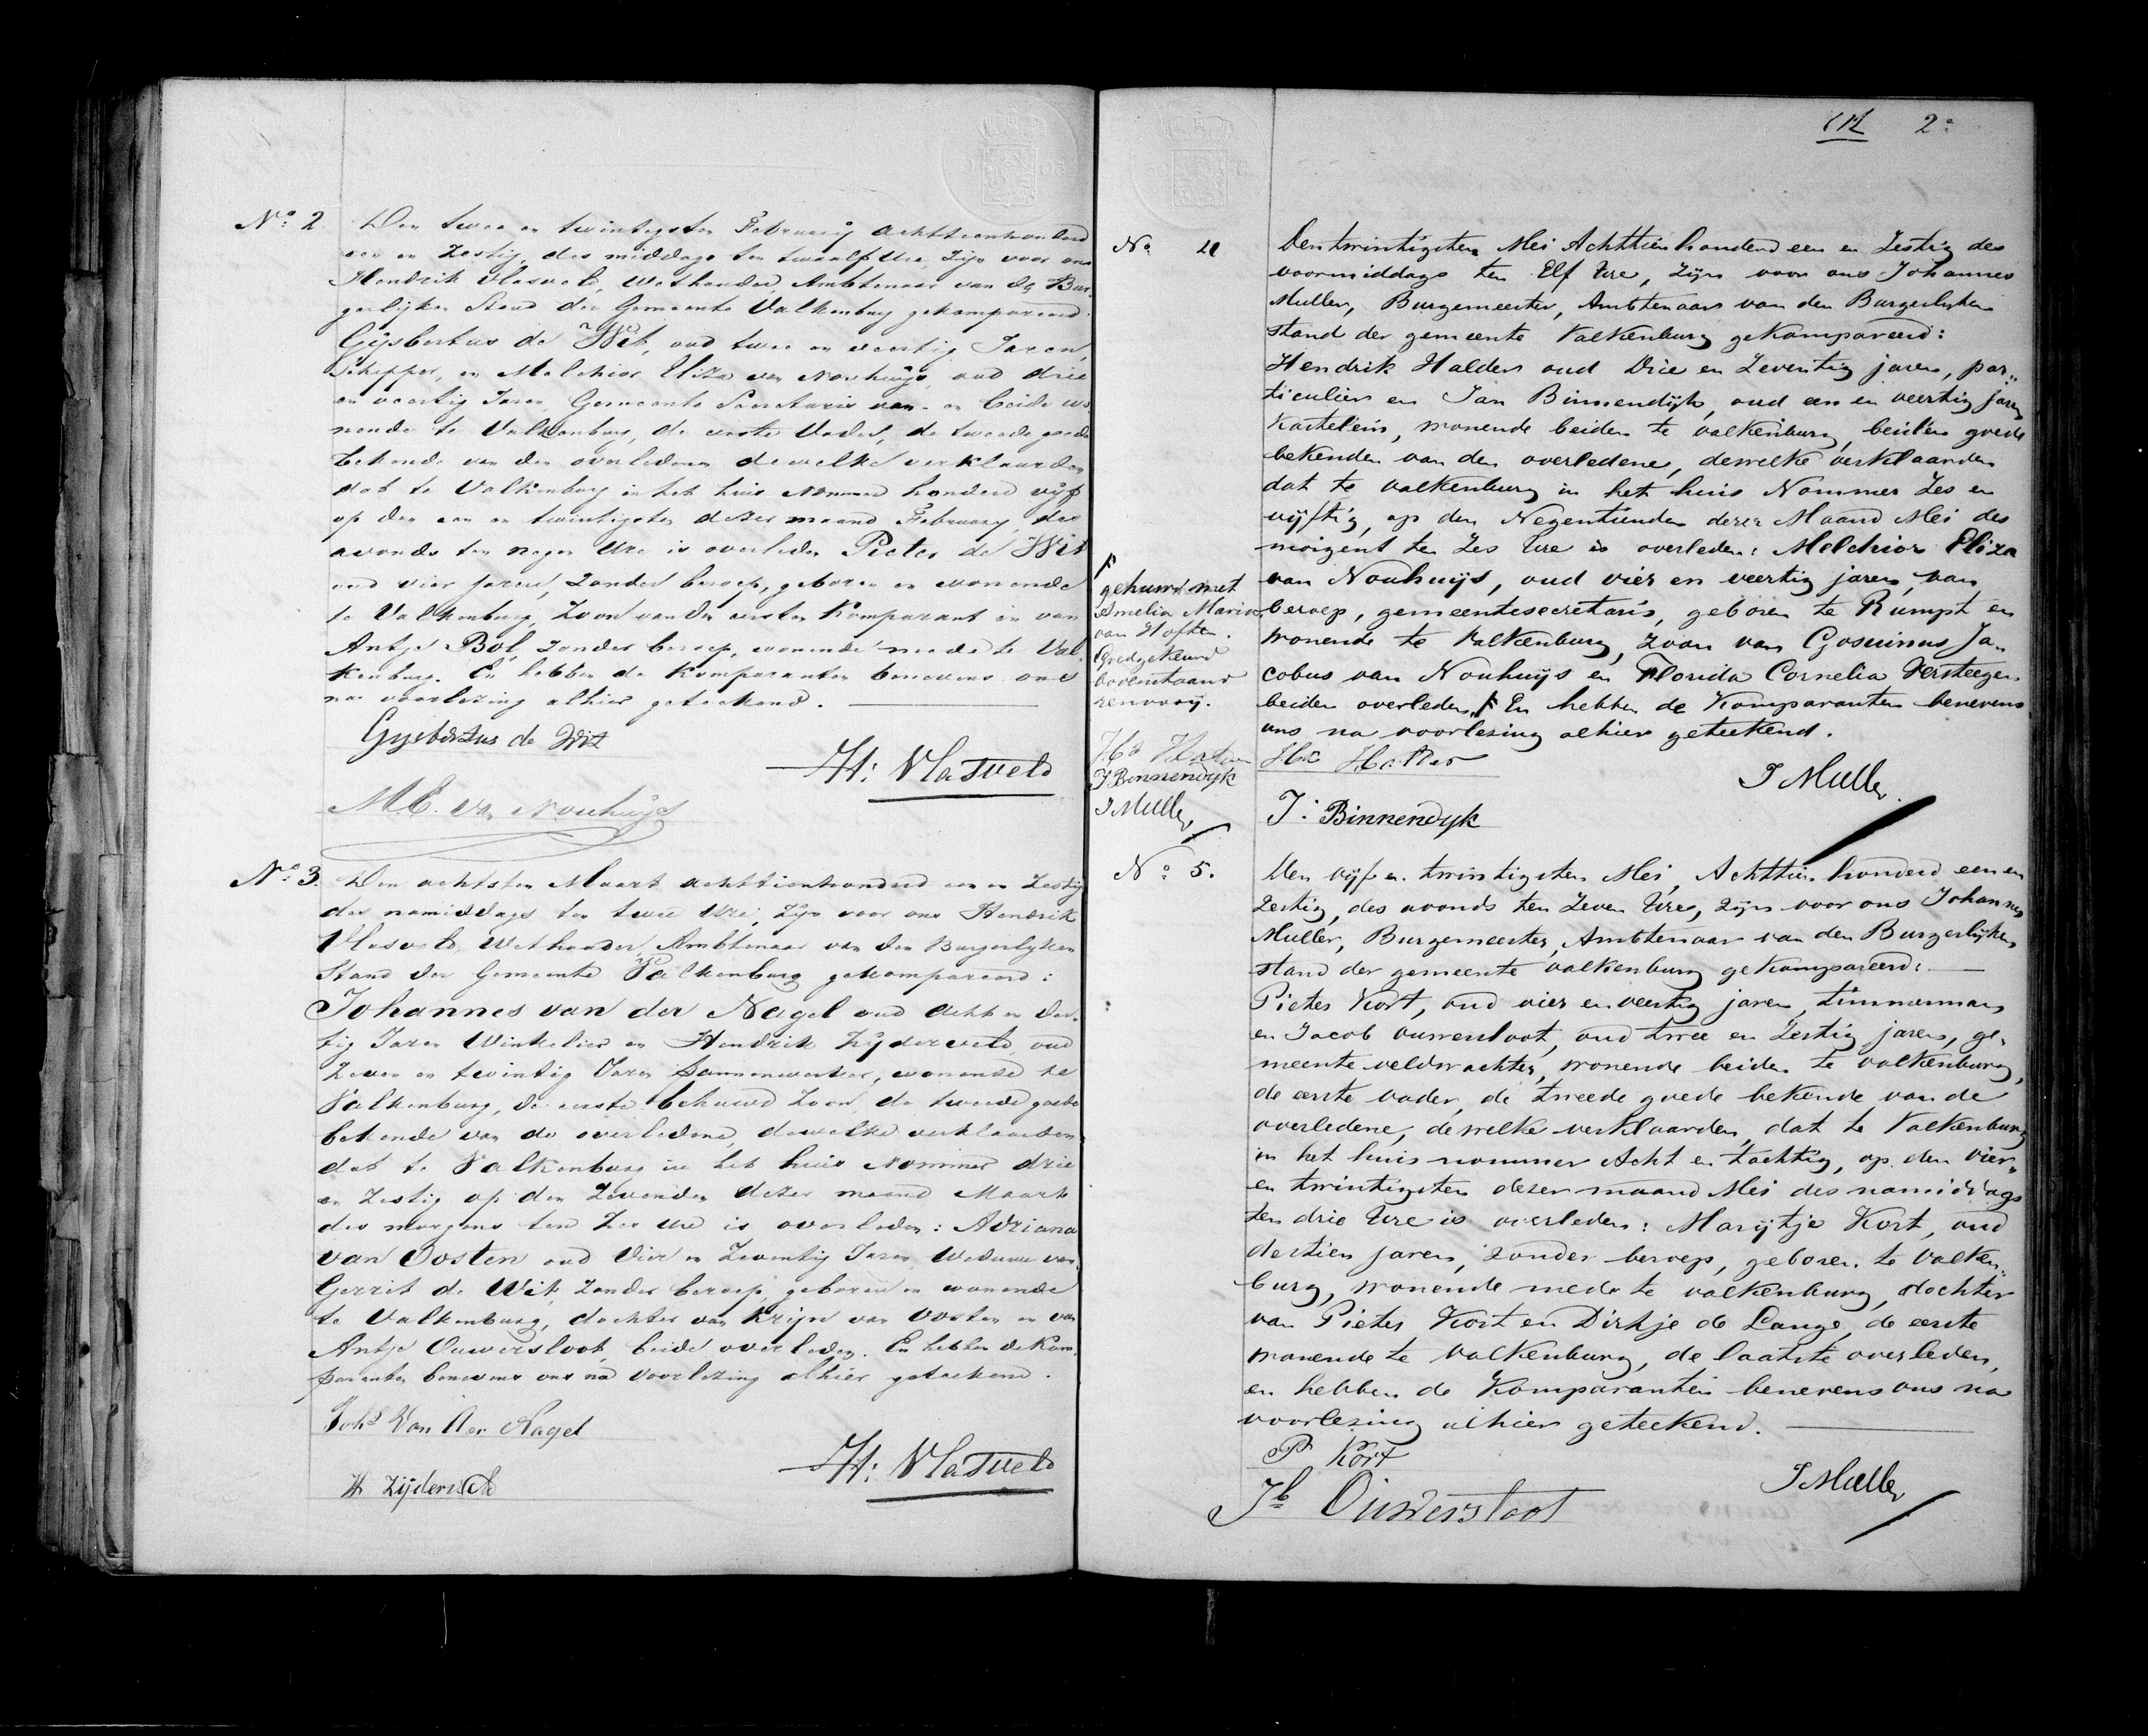 No. 2. Den twee en twintigsten Februarij achttienhonderd
een en Zestig, des middags ten twaalf Ure, zijn voor ons
Hendrik Vlasveld, Wethouder, Ambtenaar van de Bur-
gerlijken Stand der Gemeente Valkenburg gekompareerd:
Gijsbertus de Wit, oud twee en veertig Jaren,
Schipper, en Melchior Eliza van Nouhuijs, oud drie
en veertig Jaren, Gemeente Secretaris van en beide wo-
nende te Valkenburg, de eerste Vader, de tweede goede
bekende van den overledenen dewelke verklaarden
dat te Valkenburg in het huis Nommer honderd vijf
op den een en twintigsten dezer maand Februarij des
avonds ten negen Ure is overleden Pieter de Wit
oud vier jaren, zonder beroep, geboren en wonende
te Valkenburg, Zoon van den eersten Komparant en van
Antje Bol, zonder beroep, wonende mede te Val-
kenburg. En hebben de Komparanten benevens ons
na voorlezing alhier geteekend.
Gysbertus de Wit
H: Vlasveld
M.E. van Nouhuijs
No. 3. Den achtsten Maart achttienhonderd een en Zestig
des namiddags ten twee Ure, zijn voor ons Hendrik
Vlasveld, Wethouder, Ambtenaar van den Burgerlyken
Stand der Gemeente Valkenburg gekompareerd:
Johannes van der Nagel oud acht en der-
tig Jaren Winkelier en Hendrik Zijderveld, oud
Zeven en twintig Jaren Pannenwerker, wonende te
Valkenburg, de eerste behuwd Zoon, de tweede goede
bekende van de overledene, dewelke verklaarden
dat te Valkenburg in het huis Nommer drie
en Zestig op den Zevenden dezer maand Maart
des morgens ten Zes Ure is overleden: Adriana
van Oosten oud Vier en Zeventig Jaren, Weduwe van
Gerrit de Wit, zonder beroep, geboren en wonende
te Valkenburg, dochter van Krijn van Oosten en van
Antje Ouwersloot, beide overleden. En hebben de Kom-
paranten benevens ons na voorlezing alhier geteekend.
Johs Van der Nagel
H: Vlasveld
H Zijderveld
2e
No 4
Den twintigsten Mei Achttien honderd een en Zestig des
voormiddags ten Elf Ure, zijn voor ons Johannes
Muller, Burgemeester, Ambtenaar van den Burgerlyken
stand der gemeente Valkenburg gekompareerd:
Hendrik Halder oud Drie en Zeventig jaren, par-
ticulier en Jan Binnendijk, oud een en veertig jaren
Kastelein, wonende beiden te Valkenburg, beiden goede
bekenden van den overledene, dewelke verklaarden
dat te Valkenburg in het huis Nommer Zes en
vijftig, op den Negentienden dezer Maand Mei des
morgens ten Zes Ure is overleden: Melchior Eliza
van Nouhuijs, oud vier en veertig jaren, van
beroep, gemeentesecretaris, geboren te Rumpt en
wonende te Valkenburg, zoon van Gosuinus Ja-
cobus van Nouhuijs en Florida Cornelia Versteegen
beiden overleden. En hebben de Komparanten benevens
ons na voorlezing alhier geteekend.
gehuwd met
Amelia Maria
van Hoften.
Goedgekeurd
bovenstaand
renvooij.
J Binnendyk
J Muller
J Muller
J: Binnendyk
No 5.
Den vijf en twintigsten Mei, Achttien honderd een en
Zestig, des avonds ten Zeven Ure, zijn voor ons Johannes
Muller, Burgemeester, Ambtenaar van den Burgerlijken
stand der gemeente Valkenburg gekompareerd:
Pieter Kort, oud vier en veertig jaren, timmerman,
en Jacob Ouwersloot, oud twee en Zestig jaren, ge-
meente veldwachter, wonende beiden te Valkenburg,
de eerste vader, de tweede goede bekende van de
overledene, dewelke verklaarden, dat te Valkenburg
in het huis nommer Acht en tachtig, op den vier-
en twintigsten dezer maand Mei des namiddags
ten drie Ure is overleden: Marijtje Kort, oud
dertien jaren, zonder beroep, geboren te Valken-
burg, wonende mede te Valkenburg, dochter
van Pieter Kort en Dirkje de Lange, de eerste
wonende te Valkenburg, de laatste overleden,
en hebben de Komparanten benevens ons na
voorlezing alhier geteekend.
P Kort
J Muller
Jb Ouwersloot